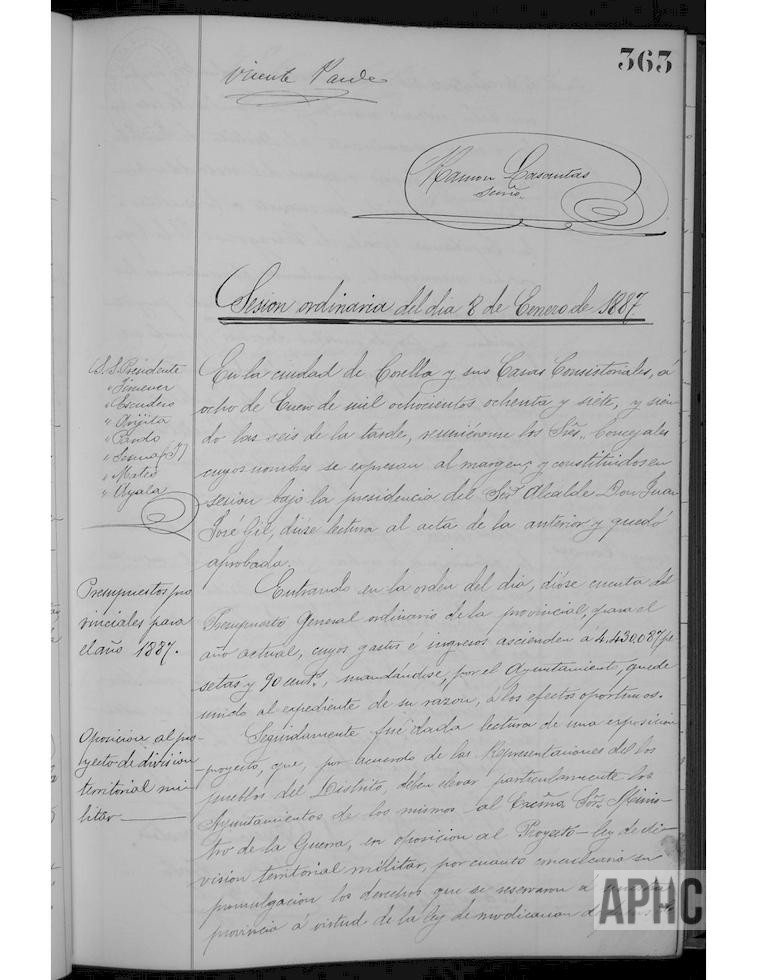 363
Vicente Pardo
Ramon Lasantas
Srio.
Sesion ordinaria del dia 8 de Enero de 1887
S. S. Presidente
" Jimenez
" Escudero
" Pardo
" Mateo
" Ayala
En la ciudad de Corella y sus Casas Consistoriales, á
ocho de Enero de mil ochocientos ochenta y siete, y sien
do las seis de la tarde, reuniéronse los Sres. Concejales
cuyos nombres se expresan al margen, y constituidos en
sesion bajo la presidencia del Sor. Alcalde Don Juan
José Gil, dióse lectura al acta de la anterior y quedó
aprobada.
Presupuestos pro
vinciales para
el año 1887.
Entrando en la orden del dia, dióse cuenta del
Presupuesto General ordinario de la provincial, para el
año actual, cuyos gastos é ingresos ascienden á 4.430,087 pe
setas y 90 cents., mandándose, por el Ayuntamiento, quede
unido al expediente de su razon, á los efectos oportunos.
Oposicion al pro-
yecto de division
territorial mi-
litar
Seguidamente fué dada lectura de una exposicion
-proyecto, que, por acuerdo de las Representaciones de los
pueblos del Distrito, deben elevar particularmente los
Ayuntamientos de los mismos al Excmo. Sor. Minis-
tro de la Guerra, en oposicion al Proyecto-ley de di-
vision territorial militar, por cuanto su
promulgacion los derechos que se reservaron á
provincia á virtud de la ley de modificacion de
APHC